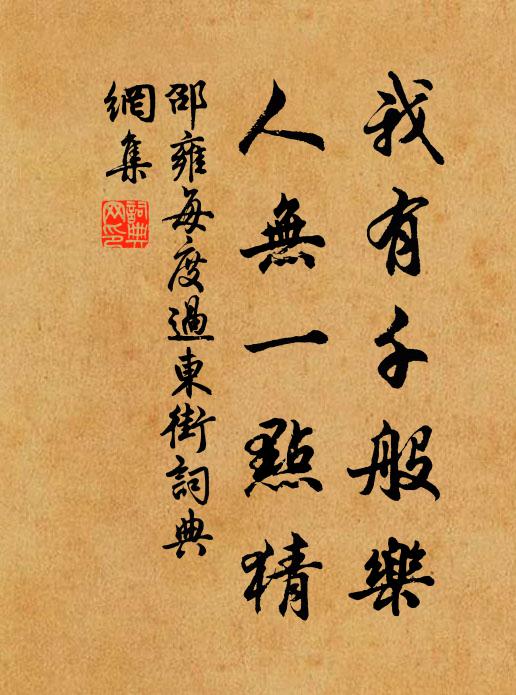 我有千般樂
人無一點猜
邵雍每度過東街詞典
網集
詞典
网印